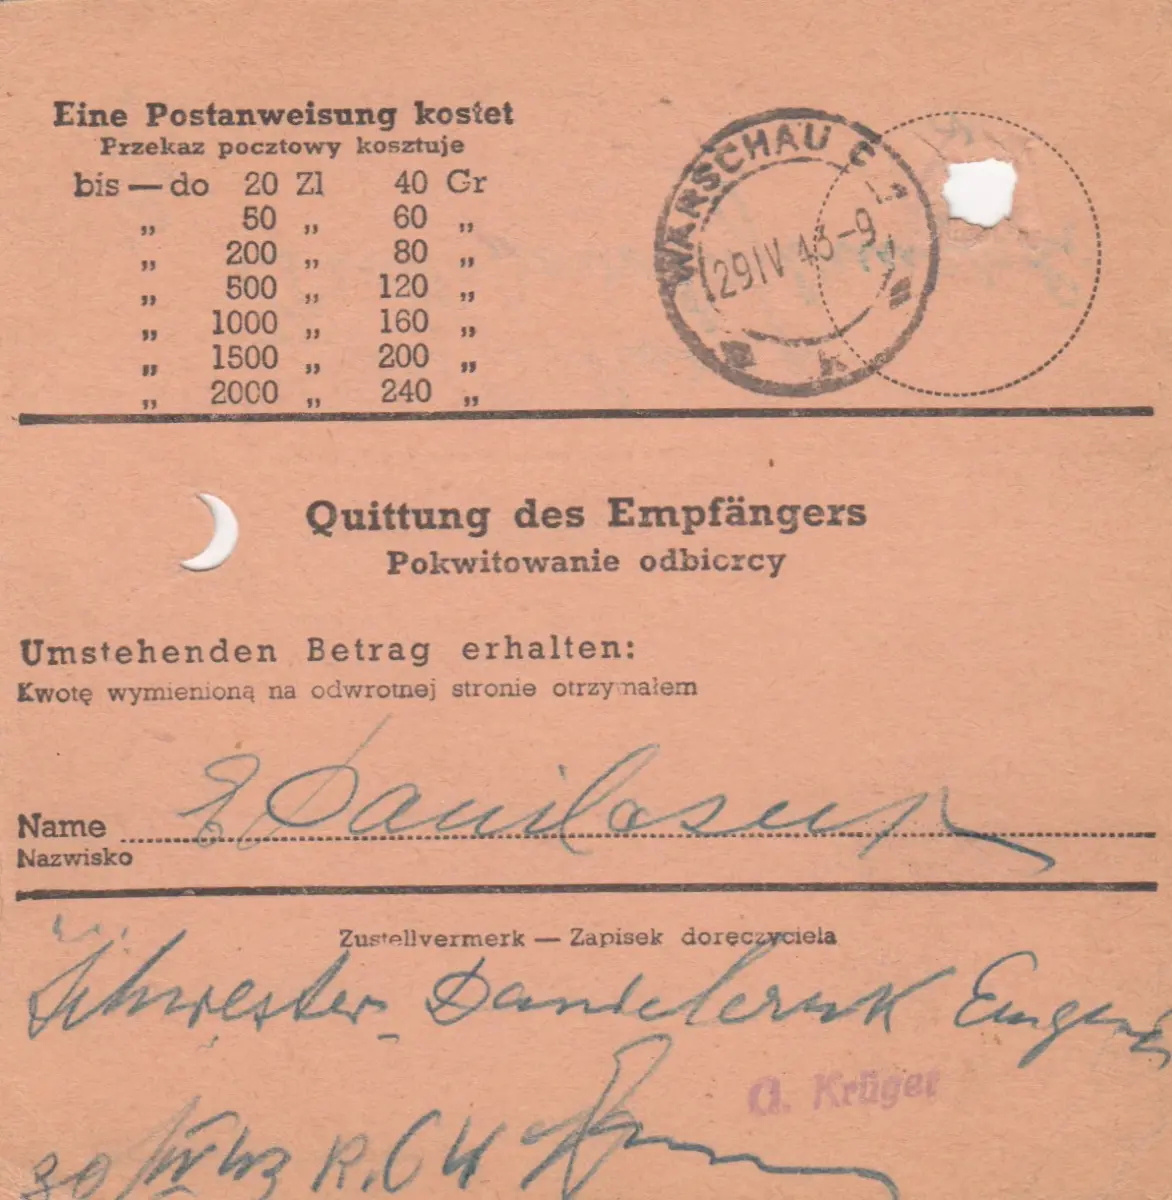 Eine Postanweisung kostet
Przekaz pocztowy kosztuje
bis — do 20 Zl 40 Gr
„ 50 „ 60 „
„ 200 „ 80 „
„ 500 „ 120 „
„ 1000 „ 160 „
„ 1500 „ 200 „
„ 2000 „ 240 „
WARSCHAU C 1
29 IV 43-9
Quittung des Empfängers
Pokwitowanie odbiorcy
Umstehenden Betrag erhalten:
Kwotę wymienioną na odwrotnej stronie otrzymałem
Name
Nazwisko
Zustellvermerk — Zapisek doręczyciela
Schwester
A. Krüger
30/IV 43